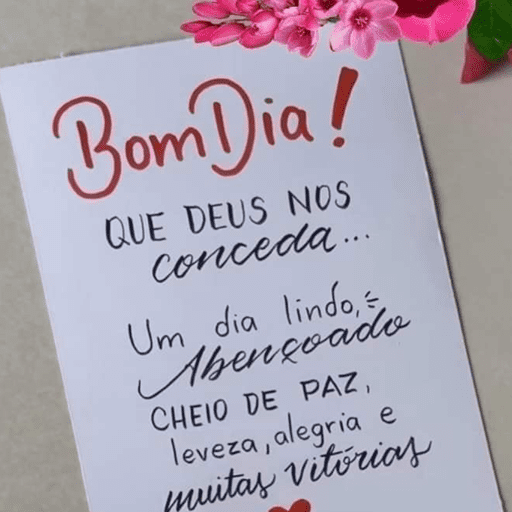 Bom Dia!
QUE DEUS NOS
conceda...
Um dia lindo,
Abençoado
CHEIO DE PAZ,
leveza, alegria e
muitas vitórias